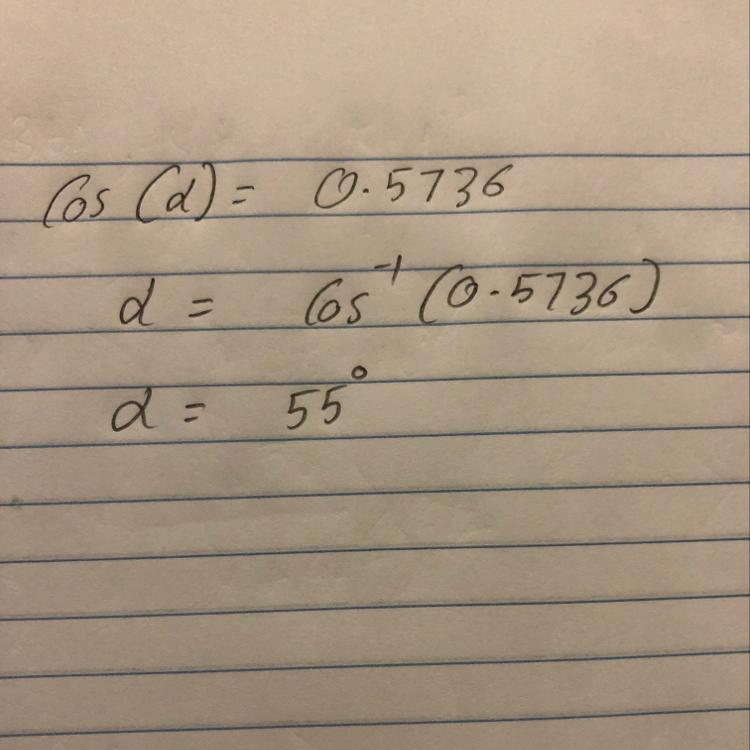 Cos (α) = 0.5736
α = Cos⁻¹ (0.5736)
α = 55°